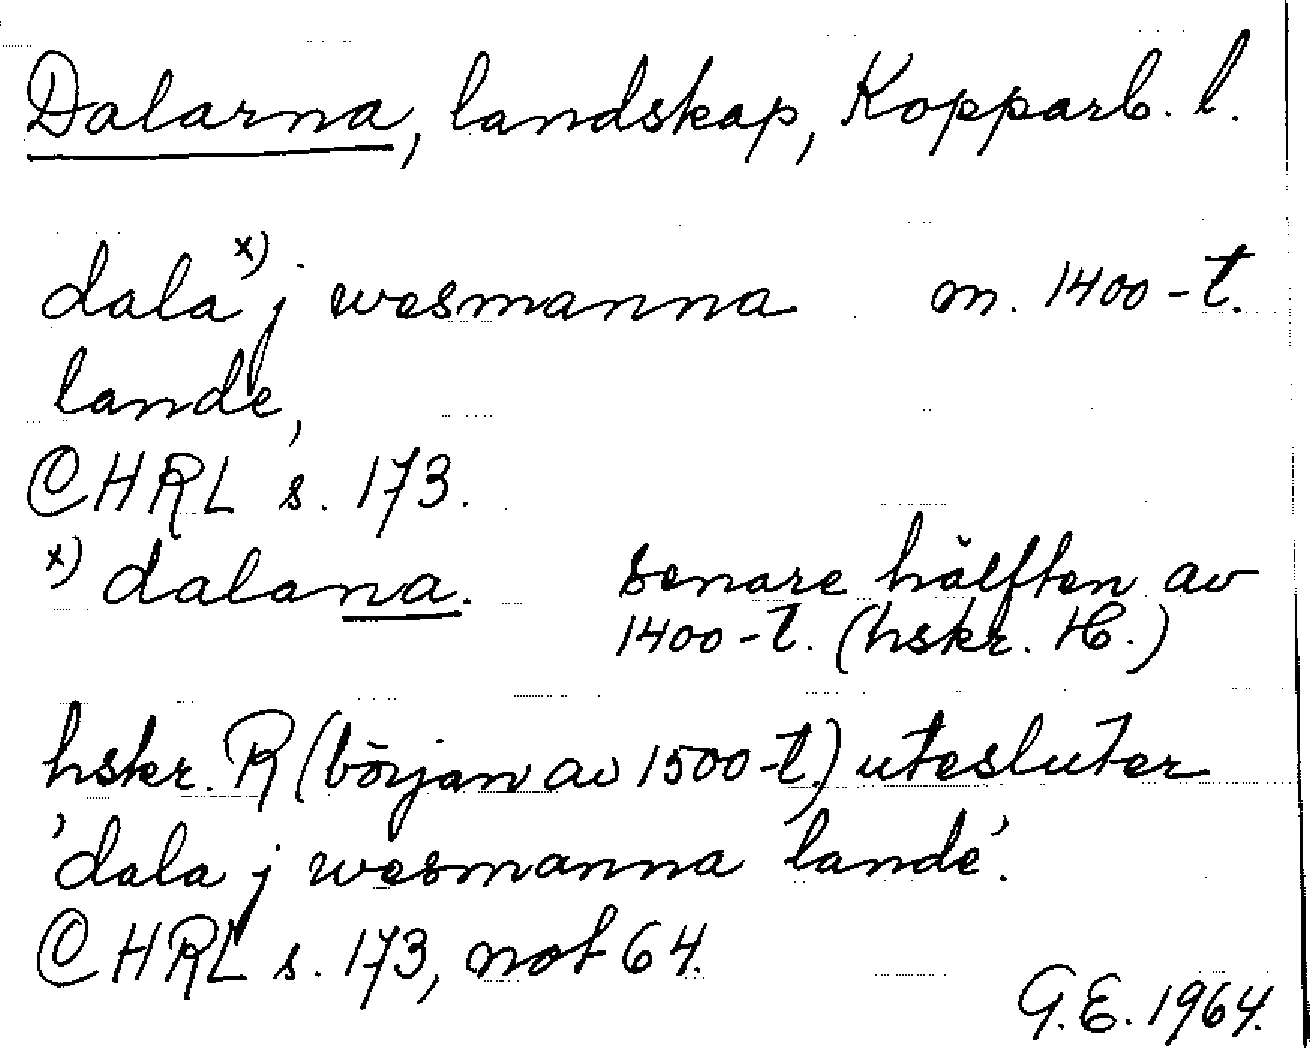 Dalarna, landskap, Kopparb. l.
dala x) j wesmanna m. 1400-t.
lande,
CHRL s. 173.
x) dalana. senare hälften av
1400-t. (hskr. H.)
hskr. R (början av 1500-t.) utesluter
'dala j wesmanna lande'.
CHRL s. 173, not 64.
G.E. 1964.